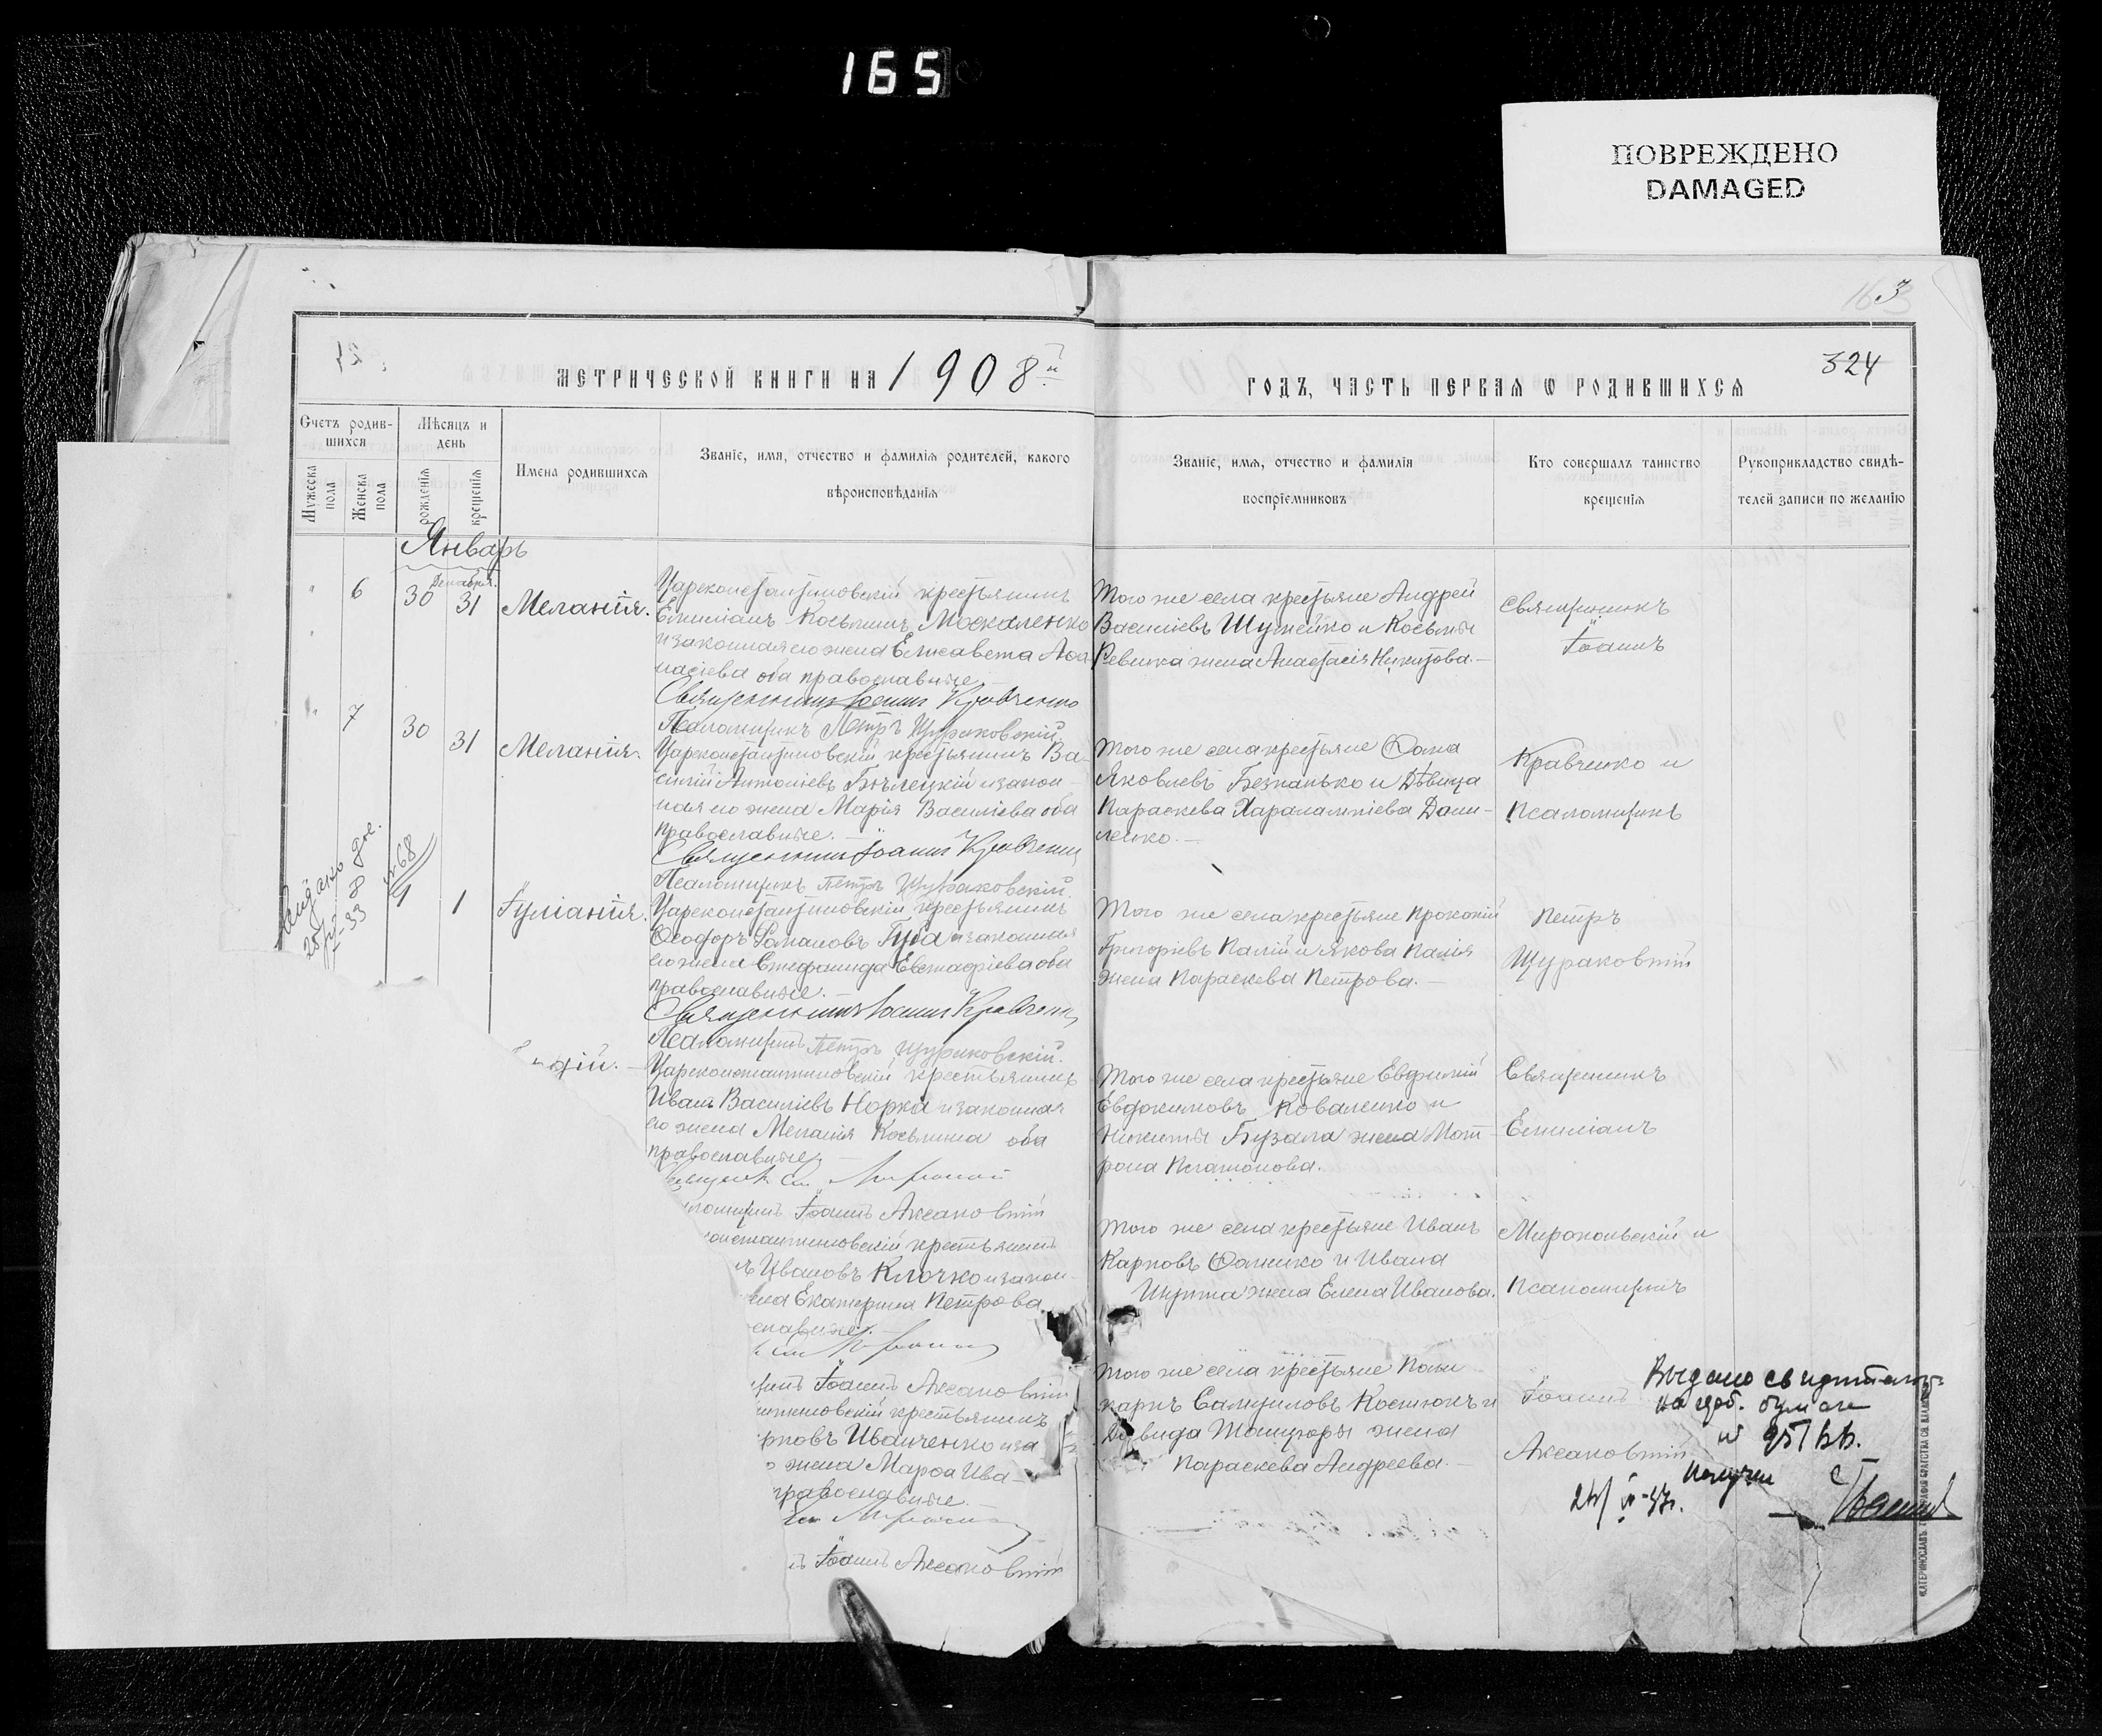 165
ПОВРЕЖДЕНО
DAMAGED
163
324
МЕТРИЧЕСКОЙ КНИГИ НА 1908й
ГОДЪ, ЧАСТЬ ПЕРВАЯ Ѿ РОДИВШИХСЯ
Счетъ родив-
шихся
Мужеска
пола
Женска
пола
Мѣсяцъ и
день
рожденія
крещенія
Имена родившихся
Званіе, имя, отчество и фамилія родителей, какого
вѣроисповѣданія
Званіе, имя, отчество и фамилія
воспріемниковъ
Кто совершалъ таинство
крещенія
Рукоприкладство свидѣ-
телей записи по желанію
Январь
Декабря.
6 30 31 Меланія.
Цареконстантиновскій крестьянинъ
Емиліанъ Косьминъ Москаленко
и законная его жена Елисавета Аѳа-
насіева оба православные.
Священникъ Іоаннъ Кравченко
Псаломщикъ Петръ Щураковскій.
Того же села крестьяне Андрей
Василіевъ Шумейко и Косьмы
Ревенка жена Анастасія Никитова.
Священникъ
Іоаннъ
7 30 31 Меланія.
Цареконстантиновскій крестьянинъ Ва-
силій Антоніевъ Бѣлецкій и закон-
ная его жена Марія Василіева оба
православные.
Священникъ Іоаннъ Кравченко
Псаломщикъ Петръ Щураковскій.
Того же села крестьяне Ѳома
Яковлевъ Безпалько и Дѣвица
Параскева Харалампіева Дани-
ленко.
Кравченко и
Псаломщикъ
№68
1 1 Іуліанія.
Цареконстантиновскій крестьянинъ
Ѳеодоръ Романовъ Губа и законная
его жена Стефанида Евстафіева оба
православные.
Священникъ Іоаннъ Кравченко
Псаломщикъ Петръ Щураковскій.
Того же села крестьяне Прокопій
Григоріевъ Палій и Якова Палія
жена Параскева Петрова.
Петръ
Щураковскій
Цареконстантиновскій крестьянинъ
Иванъ Василіевъ Норка и законная
его жена Меланія Косьмина оба
православные.
ломщикъ Іоаннъ Аксаковскій
Того же села крестьяне Евфимій
Евдокимовъ Коваленко и
Никиты Бузала жена Мот-
рона Платонова.
Священникъ
Емиліанъ
онстантиновскій крестьянинъ
ъ Ивановъ Клочко и закон-
ена Екатерина Петрова
славные.
щикъ Іоаннъ Аксаковскій
Того же села крестьяне Иванъ
Карповъ Ѳоменко и Ивана
жена Елена Иванова.
Мирополъскій и
Псаломщикъ
антиновскій крестьянинъ
рповъ Иванченко и за
о жена Марѳа Ива-
православные.
ъ Іоаннъ Аксаковскій
Того же села крестьяне Поли
карпъ Самуиловъ Костюкъ и
Давида жена
Параскева Андреева.
Іоаннъ
Аксаковскій
Выдано свидетел.